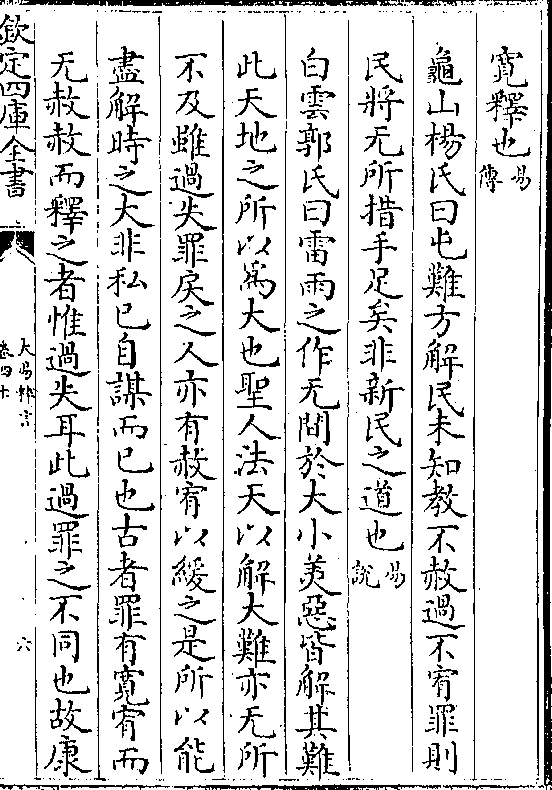 寛釋也易
傳
龜山楊氏曰屯難方解民未知教不赦過不宥罪則
民將无所措手足矣非新民之道也易
說
白雲郭氏曰雷雨之作无間於大小美惡皆解其難
此天地之所以為大也聖人法天以解大難亦无所
不及雖過失罪戾之人亦有赦宥以緩之是所以能
盡解時之大非私已自謀而已也古者罪有寛宥而
无赦赦而釋之者惟過失耳此過罪之不同也故康
欽定四庫全書
大易粹言
卷四十
六